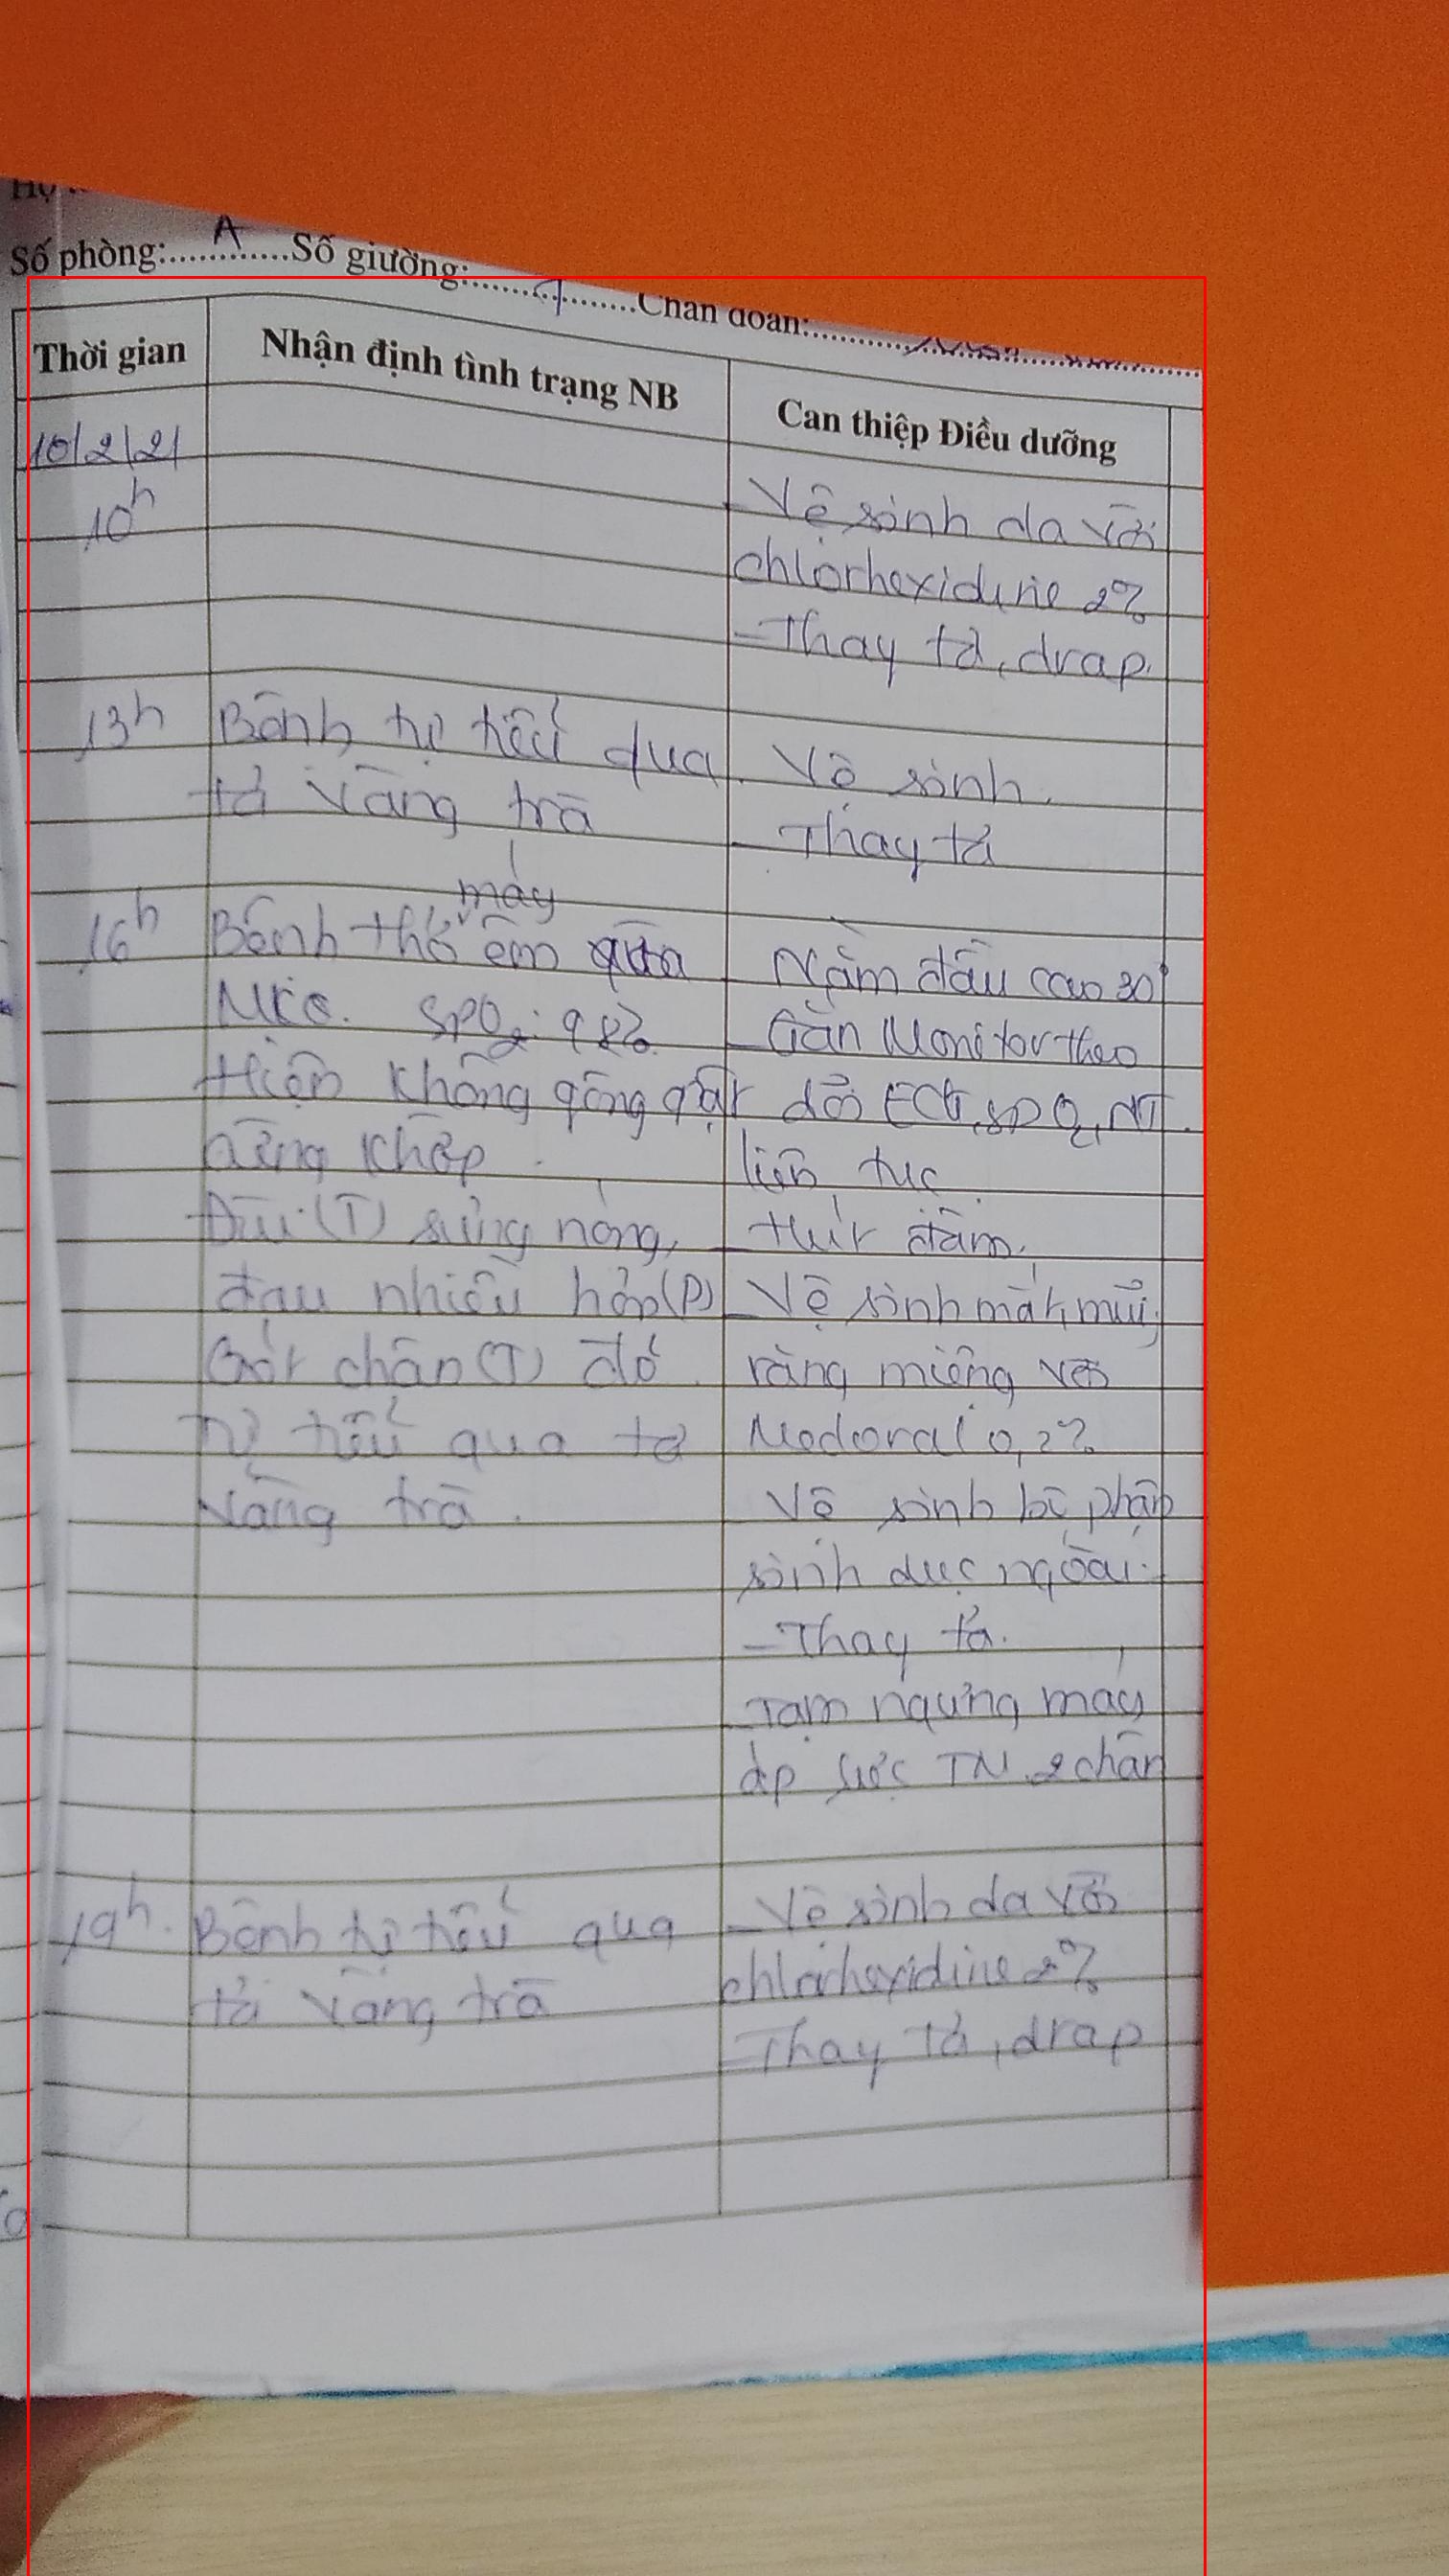 Số phòng:.....A.....Số giường:...........Chẩn đoán:...........
Thời gian
Nhận định tình trạng NB
Can thiệp Điều dưỡng
10/2/21
10h
- Vệ sinh da với
chlorhexidine 2%
- Thay tả, drap.
13h
Bệnh tự tiểu qua
tả vàng trà
- Vệ sinh.
- Thay tả
16h
máy
Bệnh thở êm qua
MKQ. SPO2: 98%
Hiện không gồng giật
từng khớp.
Đùi (T) sưng nóng,
đau nhiều hơn (P)
Gót chân (T) đỏ.
Tự tiểu qua tả
vàng trà.
- Nằm đầu cao 30°
- Gắn Monitor theo
dõi ECG, SPO2, NT.
liên tục.
- Hút đàm.
- Vệ sinh mắt, mũi,
răng miệng với
Medoral 0,2%
- Vệ sinh bộ phận
sinh dục ngoài.
- Thay tả.
- Tạm ngưng máy
áp lực TM 2 chân
19h
Bệnh tự tiểu qua
tả vàng trà
- Vệ sinh da với
chlorhexidine 2%
- Thay tả, drap